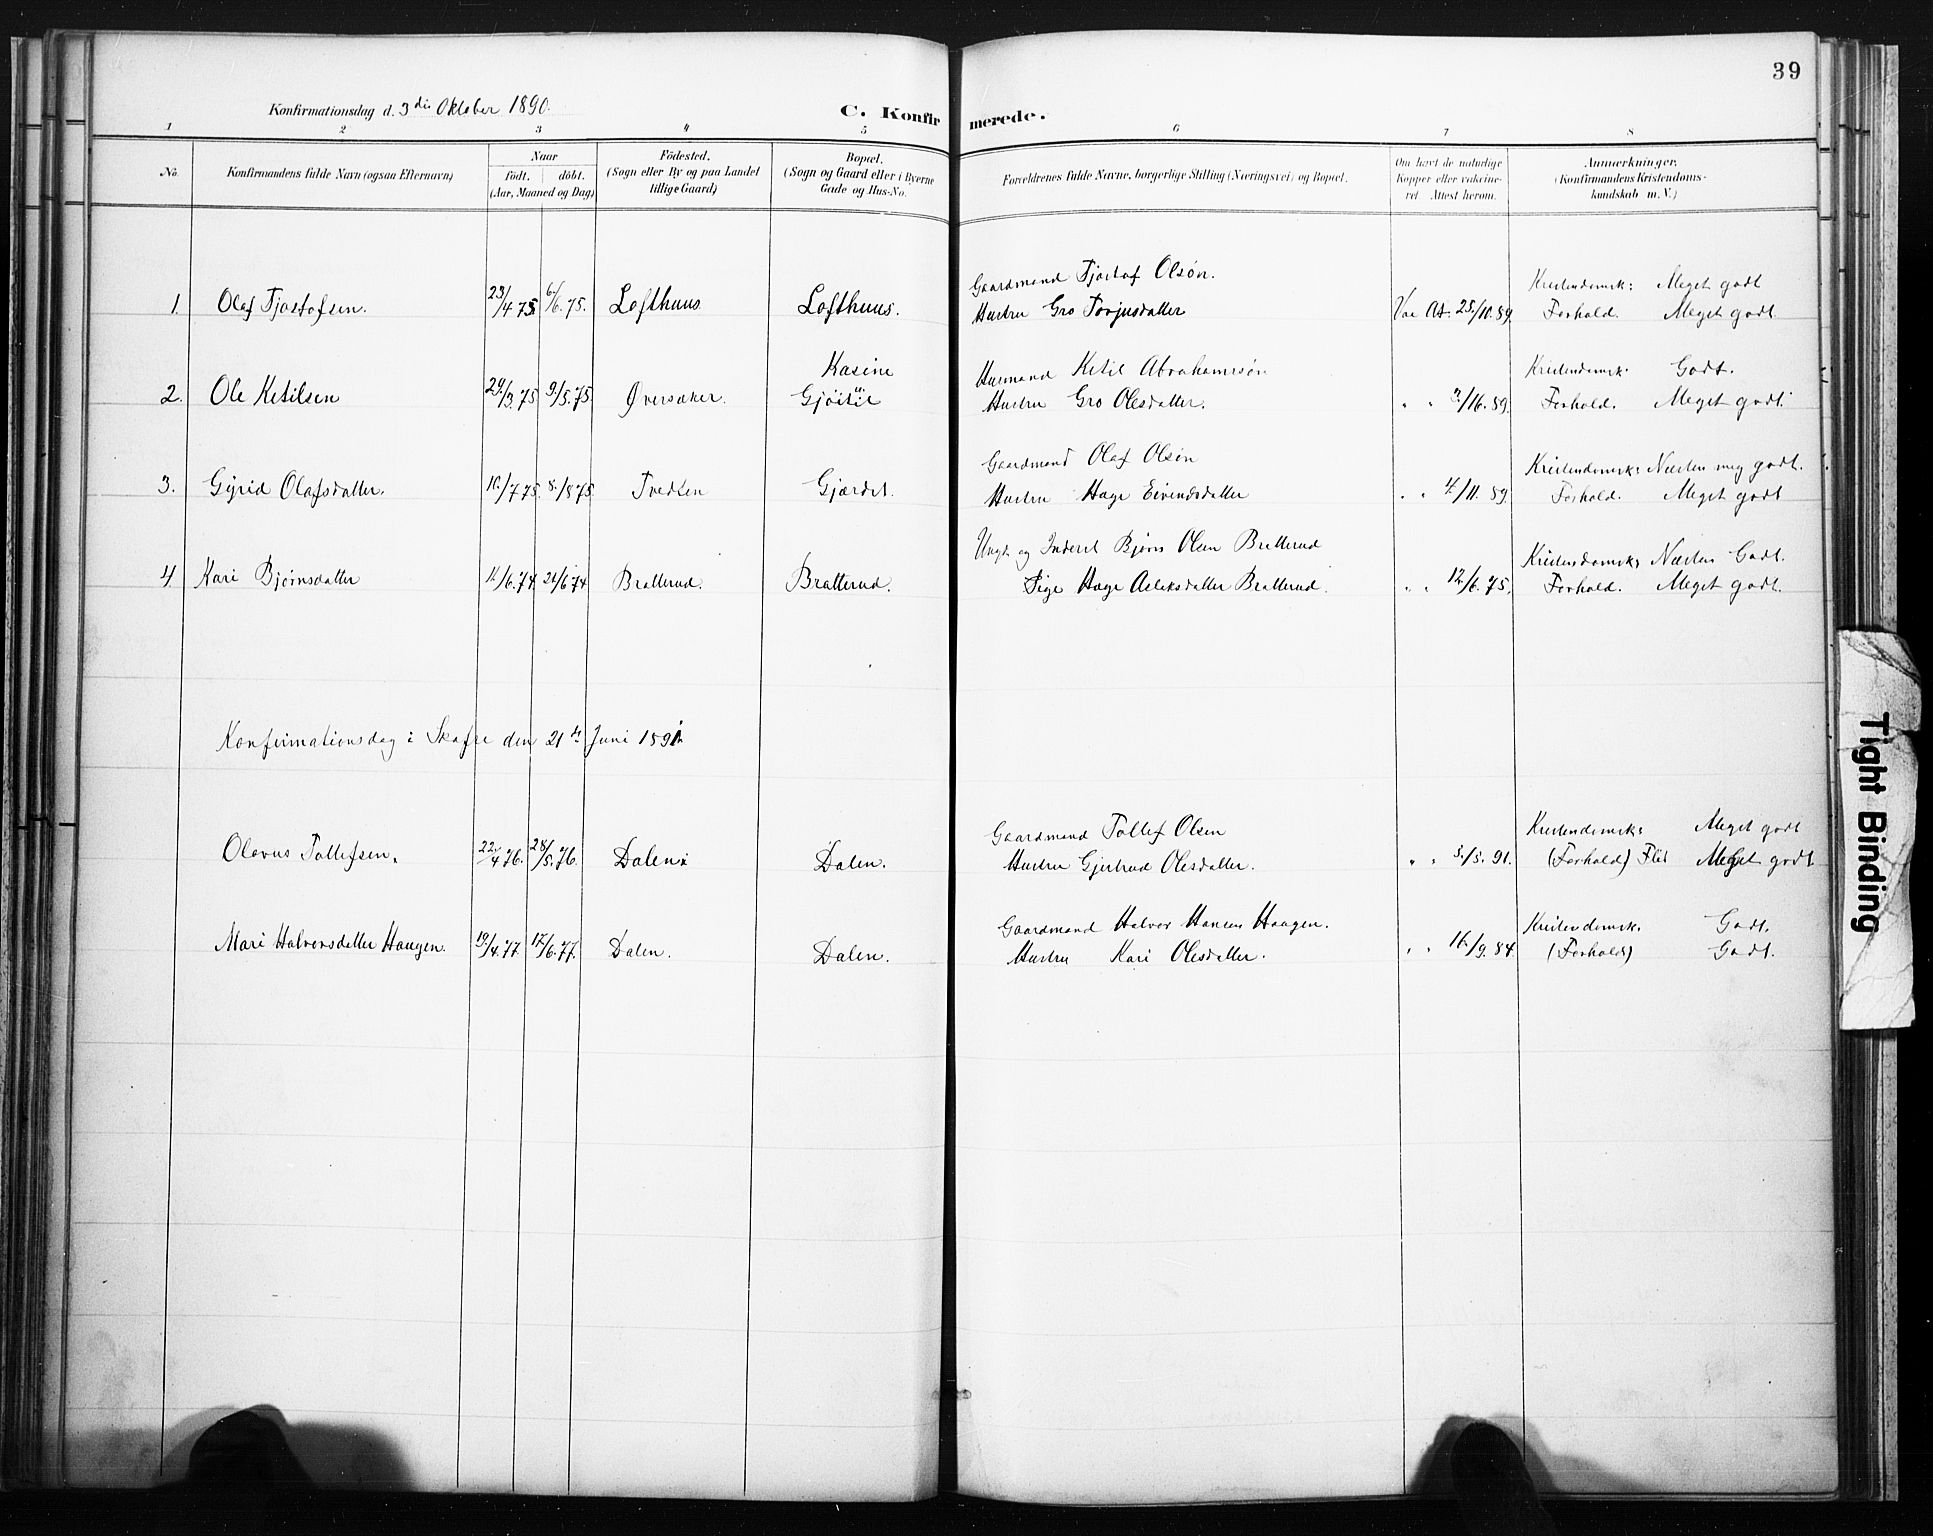 39
Konfirmationsdag d. 3die Oktober 1890.
C. Konfirmerede.
1 2 3 4 5 6 7 8
No. Konfirmandens fulde Navn (ogsaa Efternavn) Naar født. døbt. (Aar, Maaned og Dag) Födested. (Sogn eller By og paa Landet tillige Gaard) Bopæl. (Sogn og Gaard eller i Byerne Gade og Hus-No. Forældrenes fulde Navne, borgerlige Stilling (Næringsvei) og Bopæl. Om havt de naturlige Kopper eller vaccineret Attest herom. Anmærkninger. (Konfirmandens Kristendomskundskab m. V.)
Gaardmand Tjostof Olsøn. Kristendomsk: Meget godt
1. Olaf Tjostofsen. 23/4 75 6/6. 75. Lofthuus Lofthuus. Hustru Gro Torjusdatter Vac At. 25/10. 89. Forhold. Meget godt
Kasine Husmand Ketil Abrahamsøn Kristendomsk. Godt.
2. Ole Ketilsen 29/3. 75 9/5. 75. Øversaker. Hustru Gro Olesdatter. " " 89. Forhold. Meget godt
Gaardmand Olaf Olsøn Kristendomsk: Næsten meg godt.
3. Gyrid Olafsdatter. 10/7 75. 8/8 75. Tvedten Gjærdet. Hustru Hæge Eivendsdatter " " 4/11. 89. Forhold. Meget godt
Ungk og Inderst Bjørn Olsen Bratterud Kristendomsk; Næsten Godt.
4. Kari Bjørnsdatter 11/6. 74. 21/6 74 Bratterud. Bratterud. Pige Hæge Asleksdatter Bratterud. " " 12/6. 75. Forhold. Meget godt.
Konfirmationsdag i Skafse den 21de Juni 1891.
Gaardmand Tollef Olsen Kristendomsk: Meget godt
Olavus Tollefsen. 22/4 76. 28/5. 76. Dalen Dalen. Hustru Gjertrud Olesdatter. " " 5/5. 91. (Forhold) Flit Meget godt
Gaardmand Halvor Hansen Haugen. Kristendomsk. Godt.
Mari Halvorsdatter Haugen. 19/4. 77. 17/6. 77. Dalen. Dalen. Hustru Kari Olesdatter. " " 16/9. 84. (Forhold) Godt.
Tight Binding